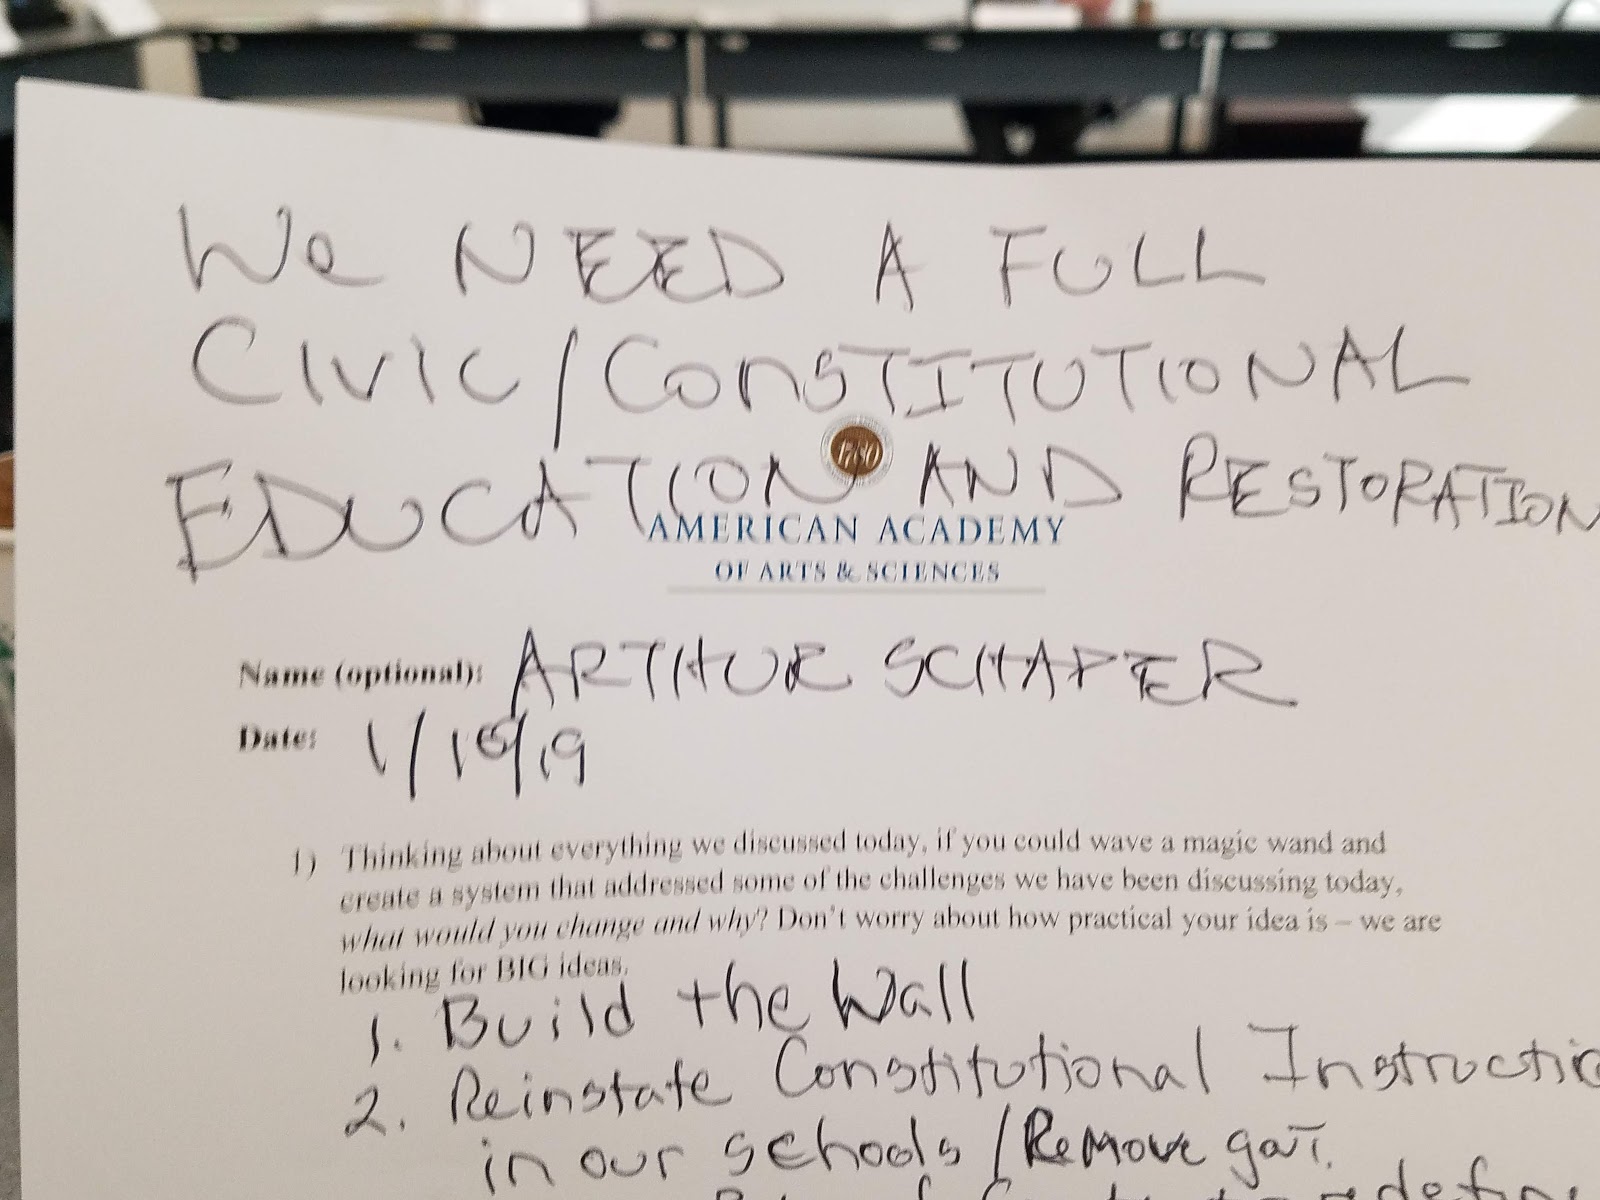 We NEED A FULL
CIVIC/CONSTITUTIONAL
EDUCATION AND RESTORATION
1780
AMERICAN ACADEMY
OF ARTS & SCIENCES
Name (optional): ARTHUR SCHAPER
Date: 1/15/19
1) Thinking about everything we discussed today, if you could wave a magic wand and
create a system that addressed some of the challenges we have been discussing today,
what would you change and why? Don't worry about how practical your idea is – we are
looking for BIG ideas.
1. Build the Wall
2. Reinstate Constitutional Instructio
in our schools / Remove gov't.